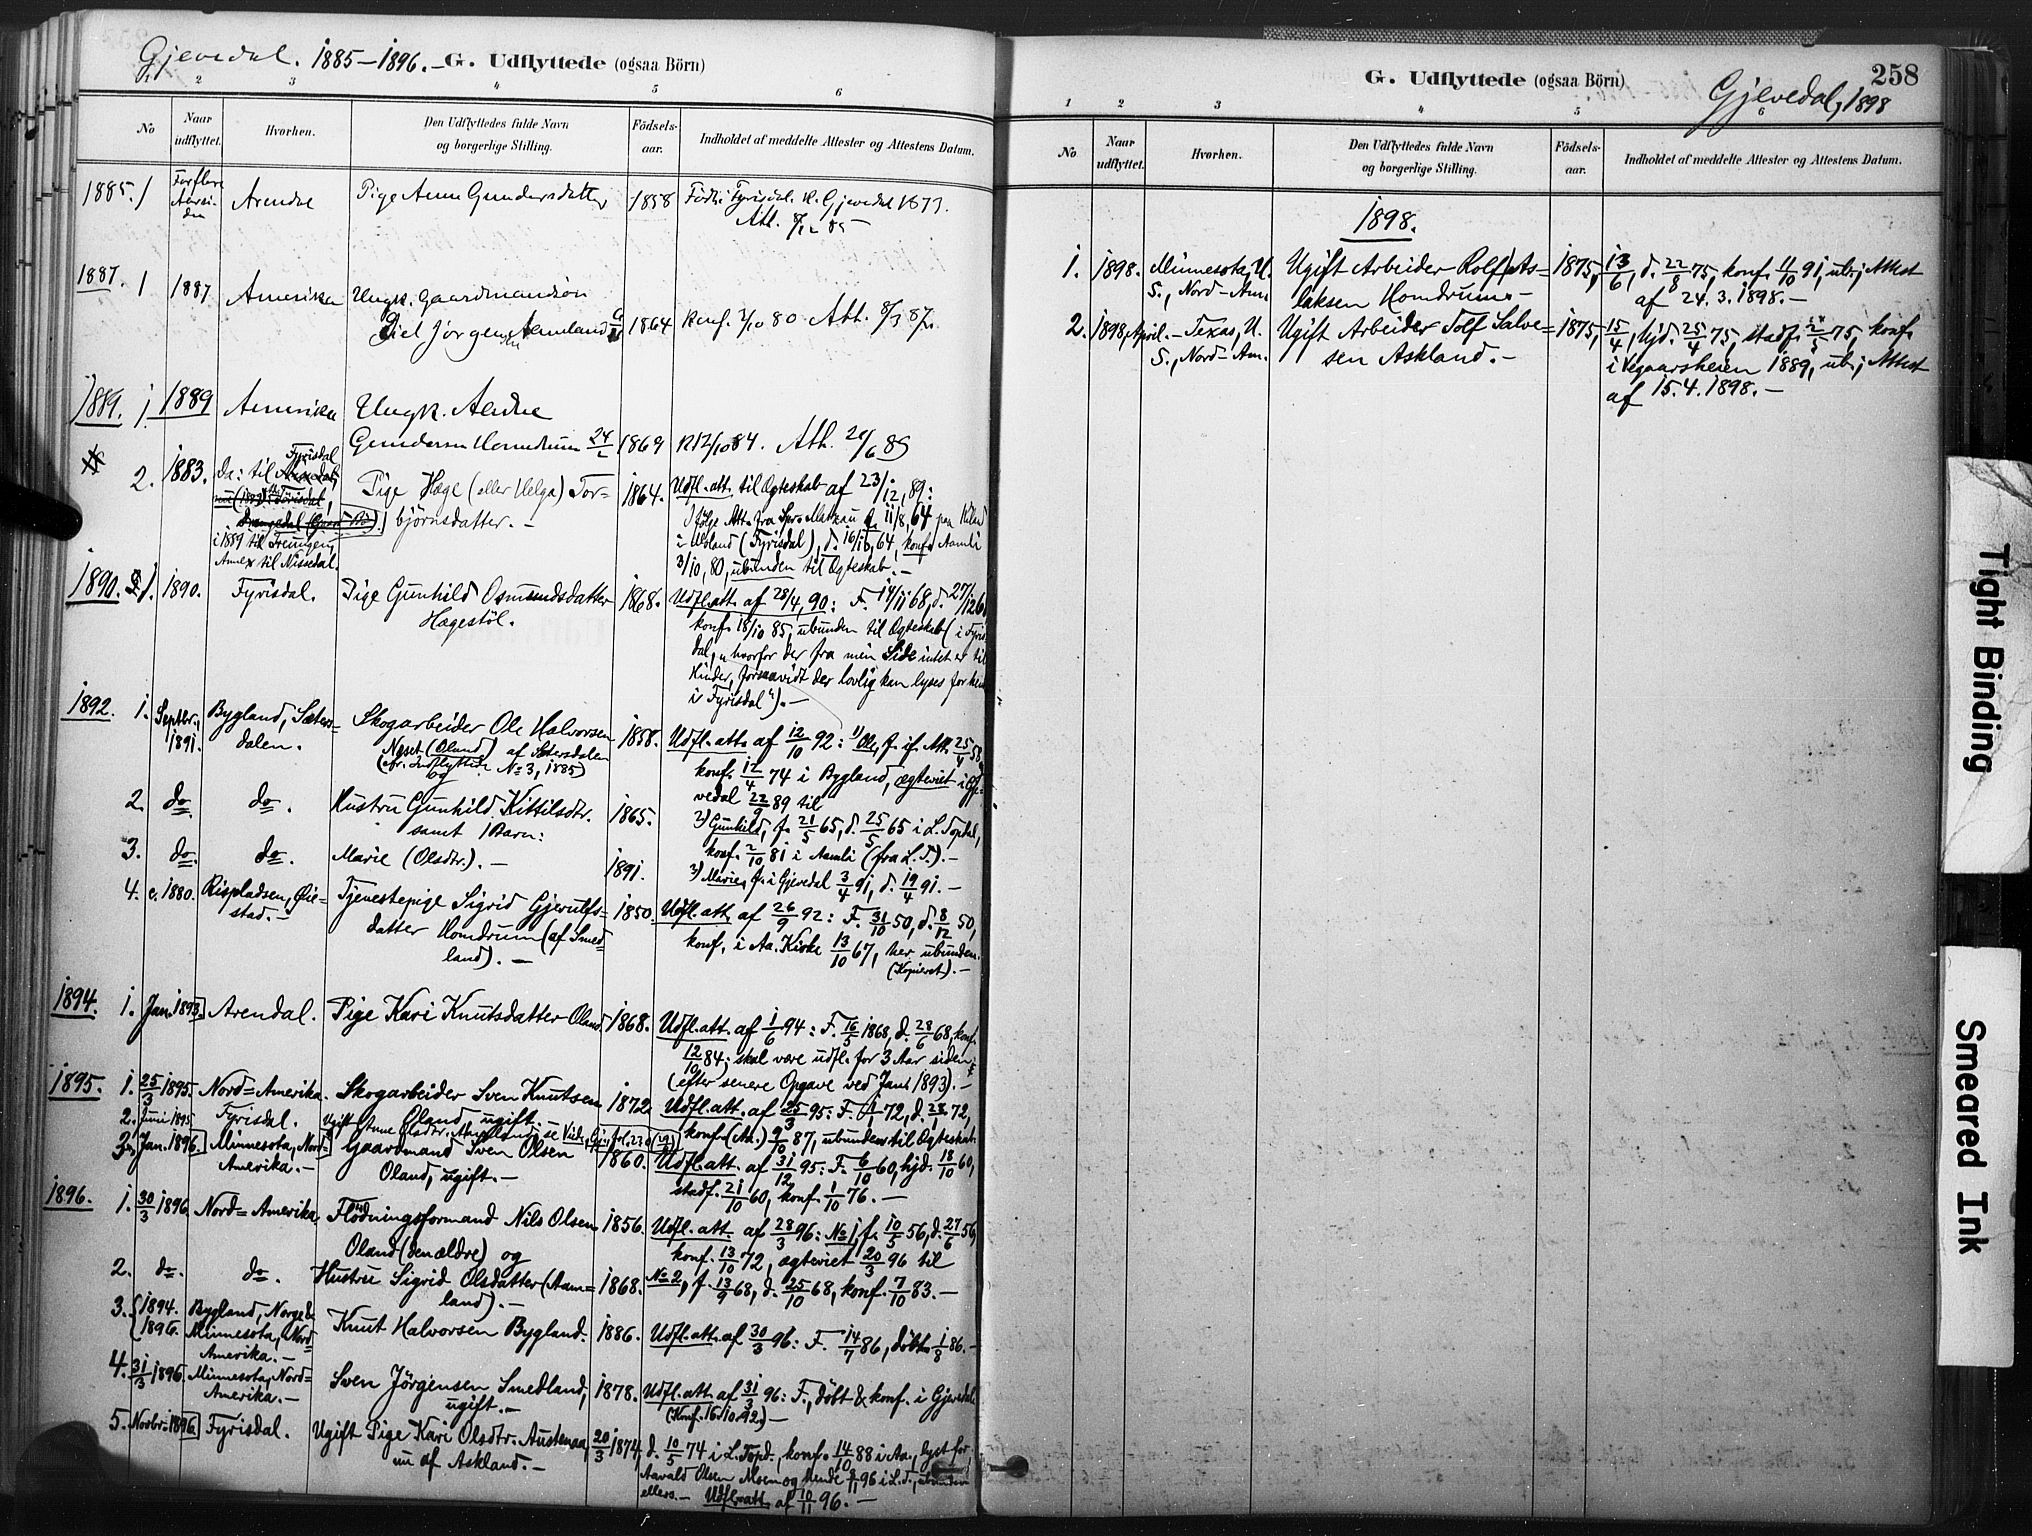 Gjevedal. 1885–1896. – G. Udflyttede (ogsaa Börn)
1 2 3 4 5 6
No
Naar udflyttet.
Hvorhen.
Den Udflyttedes fulde Navn og borgerlige Stilling.
Födsels-aar.
Indholdet af meddelte Attester og Attestens Datum.
1885. 1 For flere Aar siden Arendal Pige Anne Gundersdatter 1858 Född i Fyrisdal. K. Gjevedal 1873.
Att. 8/12 85
1887. 1 1887 Amerika Ungk. Gaardmandsön
Jörgen Aamland 1864 Konf. 80 Att. 8/3 87.
1889. 1 1889 Amerika Ungk.
Gundersen Homdrum 1869 K 12/10 84. Att. 89
2. 1883. Da: til Fyrisdal
i 1889 til Treungen,
Annex til Nissedal.
Pige Hæge (eller Helga) Tor=
björnsdatter. –
1864. Udfl. att. til Ægteskab af 23/12, 89:
ifölge Att. fra f. 11/8, 64 paa
i (Fyrisdal), d. 16/10, 64, konf. Aamli
3/10, 80, ubunden til Ægteskab. –
1890. 1. 1890. Fyrisdal. Pige Gunhild Osmundsdatter
Hægestöl.
1868. Udfl. att. af 28/4, 90: F. 14/11 68, d. 27/12 6
konf. 18/10 85, ubunden til Ægteskab (i Fyris
dal, "hvorfor der fra min Side intet er til
Hinder, forsaavidt der lovlig kan lyses for hen
i Fyrisdal"). –
1892. 1. Septbr. 1891. Bygland, Sæters=
dalen.
Skogarbeider Ole Halvorsen
Neset (Oland) af Sætersdalen
(cfr. Indflyttede No 3, 1885)
og
1858. Udfl. att. af 12/10 92: 1) Ole, f. if. Att. 25/4 58,
konf. 12/4 74 i Bygland, ægteviet i Gje=
vedal 22/9 89 til
2. do. do. Hustru Gunhild Kittilsdtr.
samt 1 Barn:
1865. 2) Gunhild, f. 21/5 65, d. 25/5 65 i L. Topdal,
konf. 2/10 81 i Aamli (fra L. T.). –
3. do. do. Marie (Olsdtr.). – 1891. 3) Marie, f. i Gjevedal 3/4 91, d. 19/4 91. –
4. c. 1880. Rispladsen, Öie=
stad. –
Tjenestepige Sigrid Gjerulfs=
datter Homdrum (af Smed=
land). –
1850. Udfl. att. af 26/9 92: F. 31/10 50, d. 8/12 50,
konf. i Aa. Kirke 13/10 67, her ubunden.
(Kopieret). –
1894. 1. Jan. 1893. Arendal. Pige Kari Knutsdatter Oland 1868. Udfl. att. af 1/6 94: F. 16/5 1868, d. 28/6 68, konf.
12/10 84; skal være udfl. for 3 Aar siden
(efter senere Opgave ved Jan. 1893). –
1895. 1. 25/3 1895. Nord=Amerika. Skogarbeider Sven Knutsen
Oland, ugift. –
1872. Udfl. att. af 25/3 95: F. 1/1 72, d. 28/1 72,
konf. (Aa.) 9/10 87, ubunden til Ægteskab.
2. Juni 1895. Fyrisdal. Ugift Anne Olsdtr.
3. Jan. 1896. Minnesota, Nord=
Amerika. –
Gaardmand Sven Olsen
Oland, ugift. –
1860. Udfl. att. af 31/12 95: F. 6/10 60, hjd. 18/10 60,
stadf. 21/10 60, konf. 1/10 76. –
1896. 1. 30/3 1896 Nord=Amerika Flödningsformand Nils Olsen
Oland (den ældre) og
1856. Udfl. att. af 28/3 96: No 1, f. 10/5 56, d. 27/6 56,
konf. 13/10 72, ægteviet 20/3 96 til
2. do. do. Hustru Sigrid Olsdatter (Aam=
land). –
1868. No 2, f. 13/9 68, d. 25/10 68, konf. 7/10 83. –
3. 1894. Bygland, Norge &
1896. Minnesota, Nord=
Amerika. –
Knut Halvorsen Bygland. 1886. Udfl. att. af 30/3 96: F. 14/7 86, döbt 1/8 86. –
4. 31/3 1896 Minnesota, Nord=
Amerika. –
Sven Jörgensen Smedland,
ugift. –
1878. Udfl. att. af 31/3 96: F., döbt & konf. i Gjevedal
(Konf. 16.10.92) –
5. Novbr. 1896. Fyrisdal. Ugift Pige Kari Olsdtr. Austenaa,
nu af Askland. –
20/3 1874, d. 10/5 74 i L. Topd., konf. 14/10 88 i Aa., lyst for
Aavald Olsen Moen og Hende 96 i L. T., ubunden
ellers. – Udfl. att. af 10/11 96. –
G. Udflyttede (ogsaa Börn)
258
Gjevedal, 1898
1 2 3 4 5 6
No
Naar udflyttet.
Hvorhen.
Den Udflyttedes fulde Navn og borgerlige Stilling.
Födsels-aar.
Indholdet af meddelte Attester og Attestens Datum.
1898.
1. 1898. Minnesota, U.
S., Nord-Am.
Ugift Arbeider Rolf As=
laksen Homdrum. –
1875, 13/6, d. 22/8 75, konf. 11/10 91, ub., Attest
af 24.3.1898. –
2. 1898, April. – Texas, U.
S., Nord-Am.
Ugift Arbeider Tolf Salve=
sen Askland. –
1875, 15/4, hjd. 25/4 75, stadf. 75, konf.
i Vegaarsheien 1889, ub., Attest
af 15.4.1898. –
Tight Binding
Smeared Ink